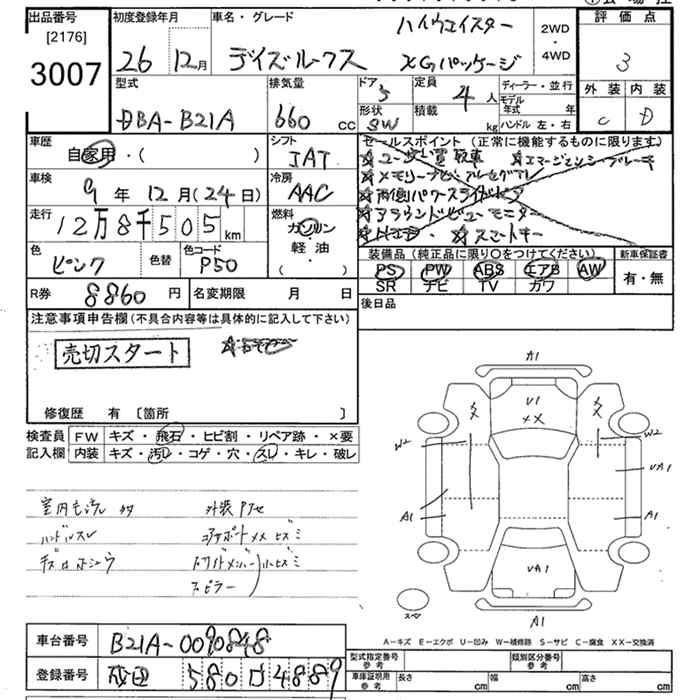 出品番号
[2176]
3007
初度登録年月
26 12月
車名・グレード
ハイウェイスター
デイズルークス XGパッケージ
2WD
・
4WD
評価点
3
外装 内装
C D
型式
DBA-B21A
排気量
660 cc
ドア
5
形状
SW
定員
4 人
積載
kg
ディーラー・並行
モデル年式 年
ハンドル 左・右
車歴
自家用・( )
シフト
IAT
車検
9 年 12 月(24日)
冷房
AAC
走行
12万8千505 km
燃料
ガソリン
軽・油
( ・ )
色
ピンク
色替
色コード
P50
セールスポイント(正常に機能するものに限ります)
☆ユーザー買取車 ☆エマージェンシーブレーキ
☆両側パワースライドドア
☆アラウンドビューモニター
☆スマートキー
装備品(純正品に限り〇をつけてください)
PS PW ABS エアB AW
SR ナビ TV ガワ
新車保証書
有・無
R券 8860 円
名変期限 月 日
後日品
注意事項申告欄(不具合内容等は具体的に記入して下さい)
売切スタート
修復歴 有 〔箇所 〕
検査員記入欄
FW キズ・飛石・ヒビ割・リペア跡・×要
内装 キズ・汚レ・コゲ・穴・スレ・キレ・破レ
室内モ汚レ 多 外装
ハンドルスレ コアサポートメメ ヒズミ
サイドメンバー 小ヒズミ
Sピラー
A1
U1
XX
W2
W2
UA1
A1
A1
UA1
A1
スペア
A-キズ E-エクボ U-凹み W-補修跡 S-サビ C-腐食 XX-交換済
車台番号 B21A-0090848
登録番号 580 4889
型式指定番号
参考
類別区分番号
参考
車庫証明用
参考
長さ cm
幅 cm
高さ cm